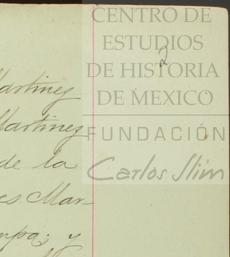 CENTRO DE
ESTUDIOS
2
DE HISTORIA
DE MEXICO
FUNDACIÓN
Carlos Slim
Martinez
Martinez
de la
es Mar-
mpa; y